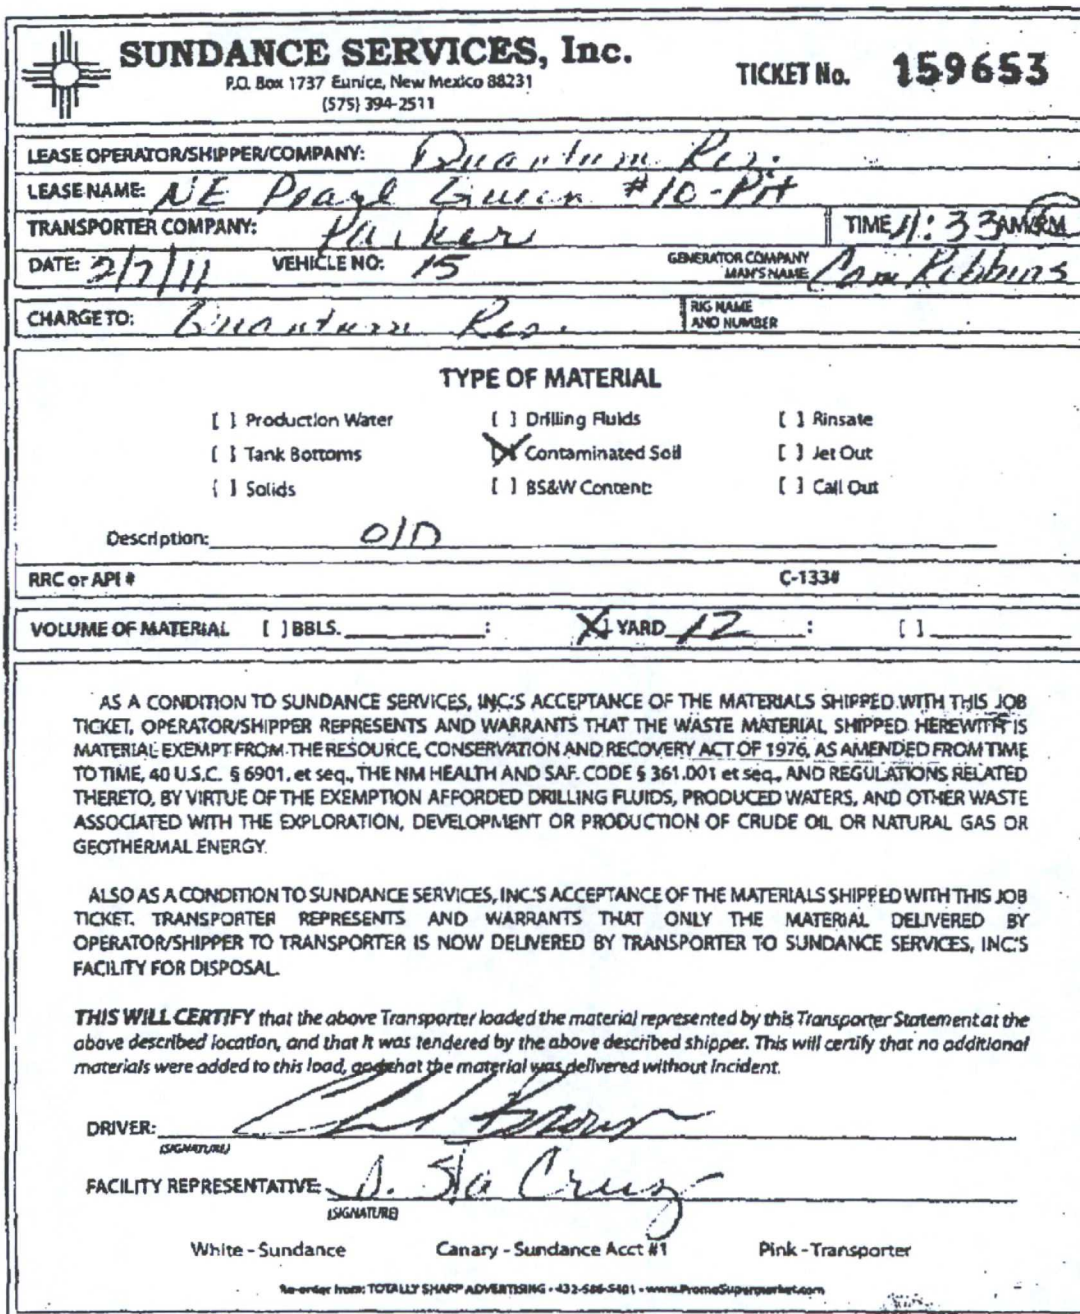 SUNDANCE SERVICES, Inc.
P.O. Box 1737 Eunice, New Mexico 88231
(575) 394-2511
TICKET No. 159653
LEASE OPERATOR/SHIPPER/COMPANY: Quantum Res.
LEASE NAME: NE Pearl Queen #10-Pit
TRANSPORTER COMPANY: Parker TIME 11:33 AM/PM
DATE: 2/7/11 VEHICLE NO: 15 GENERATOR COMPANY MAN'S NAME: Robbins
CHARGE TO: Quantum Res. RIG NAME AND NUMBER
TYPE OF MATERIAL
[ ] Production Water [ ] Drilling Fluids [ ] Rinsate
[ ] Tank Bottoms [X] Contaminated Soil [ ] Jet Out
[ ] Solids [ ] BS&W Content: [ ] Call Out
Description: O/D
RRC or API # C-133#
VOLUME OF MATERIAL [ ] BBLS. : [X] YARD 12 : [ ]
AS A CONDITION TO SUNDANCE SERVICES, INC.'S ACCEPTANCE OF THE MATERIALS SHIPPED WITH THIS JOB
TICKET, OPERATOR/SHIPPER REPRESENTS AND WARRANTS THAT THE WASTE MATERIAL SHIPPED HEREWITH IS
MATERIAL EXEMPT FROM THE RESOURCE, CONSERVATION AND RECOVERY ACT OF 1976, AS AMENDED FROM TIME
TO TIME, 40 U.S.C. § 6901, et seq., THE NM HEALTH AND SAF. CODE § 361.001 et seq., AND REGULATIONS RELATED
THERETO, BY VIRTUE OF THE EXEMPTION AFFORDED DRILLING FLUIDS, PRODUCED WATERS, AND OTHER WASTE
ASSOCIATED WITH THE EXPLORATION, DEVELOPMENT OR PRODUCTION OF CRUDE OIL OR NATURAL GAS OR
GEOTHERMAL ENERGY.
ALSO AS A CONDITION TO SUNDANCE SERVICES, INC.'S ACCEPTANCE OF THE MATERIALS SHIPPED WITH THIS JOB
TICKET. TRANSPORTER REPRESENTS AND WARRANTS THAT ONLY THE MATERIAL DELIVERED BY
OPERATOR/SHIPPER TO TRANSPORTER IS NOW DELIVERED BY TRANSPORTER TO SUNDANCE SERVICES, INC'S
FACILITY FOR DISPOSAL.
THIS WILL CERTIFY that the above Transporter loaded the material represented by this Transporter Statement at the
above described location, and that it was tendered by the above described shipper. This will certify that no additional
materials were added to this load, and that the material was delivered without incident.
DRIVER:
(SIGNATURE)
FACILITY REPRESENTATIVE: S. Sta Cruz
(SIGNATURE)
White - Sundance Canary - Sundance Acct #1 Pink - Transporter
Re-order from: TOTALLY SHARP ADVERTISING • 432-586-5401 • www.PromoSupermarket.com